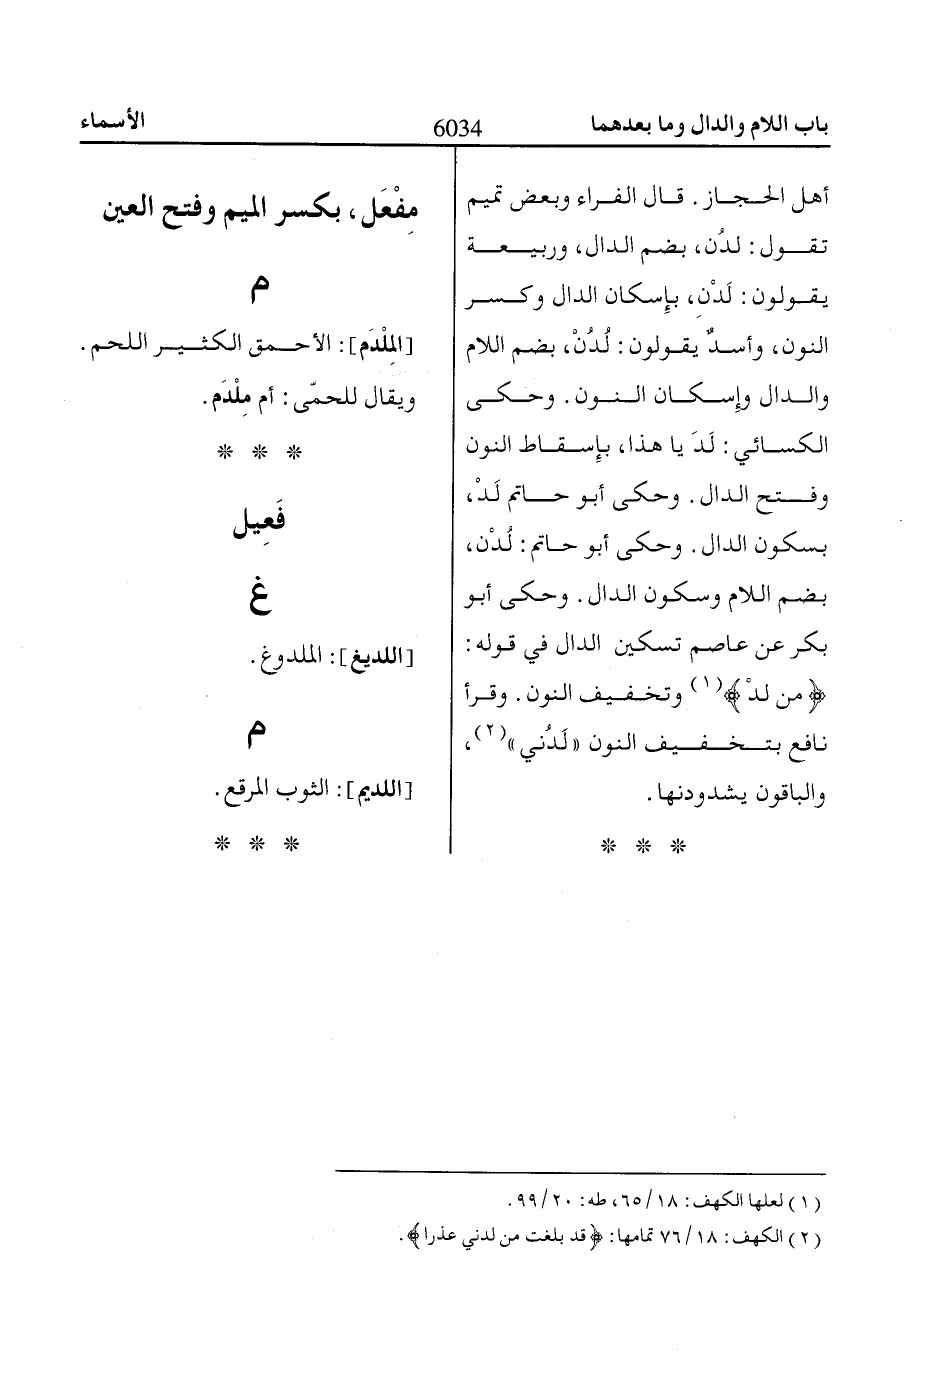 باب اللام والدال وما بعدهما
6034
الأسماء
أهل الحجاز. قال الفراء وبعض تميم
تقول: لدُن، بضم الدال، وربيعة
يقولون: لَدْنِ، بإسكان الدال وكسر
النون، وأسدٌ يقولون: لُدُنْ، بضم اللام
والدال وإسكان النون. وحكى
الكسائي: لَدَ يا هذا، بإسقاط النون
وفتح الدال. وحكى أبو حاتم لَدْ،
بسكون الدال. وحكى أبو حاتم: لُدْن،
بضم اللام وسكون الدال. وحكى أبو
بكر عن عاصم تسكين الدال في قوله:
﴿من لدْ﴾(١) وتخفيف النون. وقرأ
نافع بتخفيف النون «لَدُني»(٢)،
والباقون يشدودنها.
* * *
مِفْعَل، بكسر الميم وفتح العين
م
[المِلْدَم]: الأحمق الكثير اللحم.
ويقال للحمّى: أم مِلْدَم.
* * *
فَعِيل
غ
[اللديغ]: الملدوغ.
م
[اللديم]: الثوب المرقع.
* * *
(١) لعلها الكهف: ١٨/ ٦٥، طه: ٢٠/ ٩٩.
(٢) الكهف: ١٨/ ٧٦ تمامها: ﴿قد بلغت من لدني عذرا﴾.